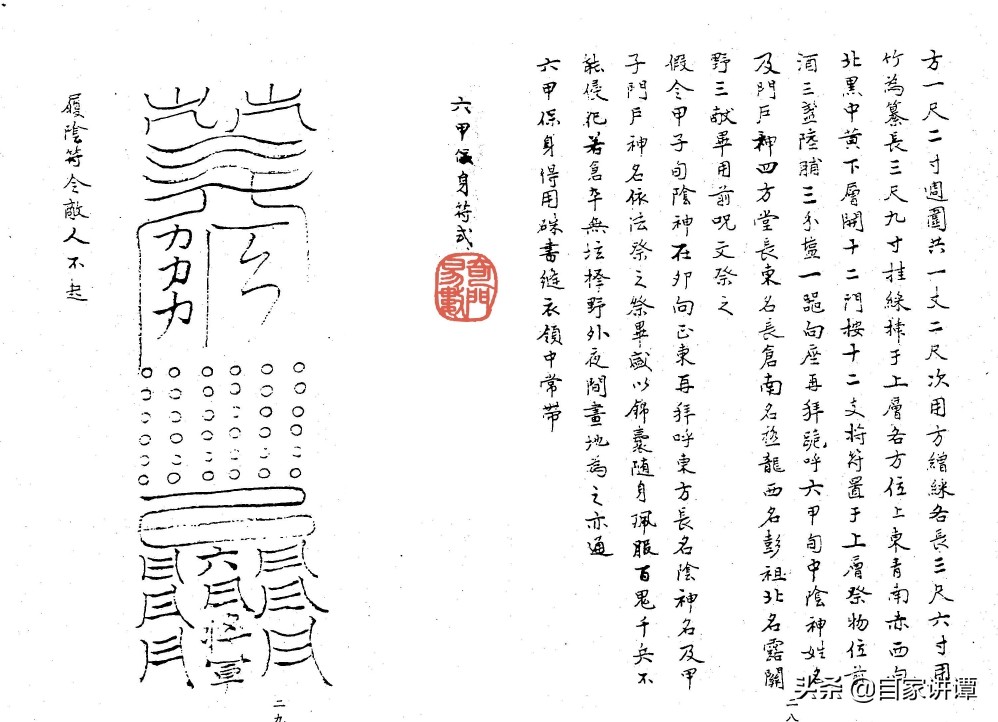 方一尺二寸週圍共一丈二尺次用方繒綵各長三尺六寸用
竹為纂長三尺九寸挂綵于上層各方位上東青南赤西白
北黑中黃下層開十二門按十二支將符置于上層祭物位前
酒三盞陸脯三分盐一器向座再拜跪呼六甲旬中陰神姓名
及門戶神四方堂長東名長倉南名龍西名彭祖北名露關
野三献畢用前呪文祭之
假令甲子旬陰神在夘向正東再拜呼東方長名陰神名及甲
子門戶神名依法祭之祭畢盛以錦囊随身珮服百鬼千兵不
能侵犯若倉卒無法擇野外夜間畫地為之亦通
六甲保身得用硃書縫衣領中常帶
二八
六甲保身符式
奇門易數
力力力
六
將軍
履陰符令敵人不起
二九
头条 @自家讲谭